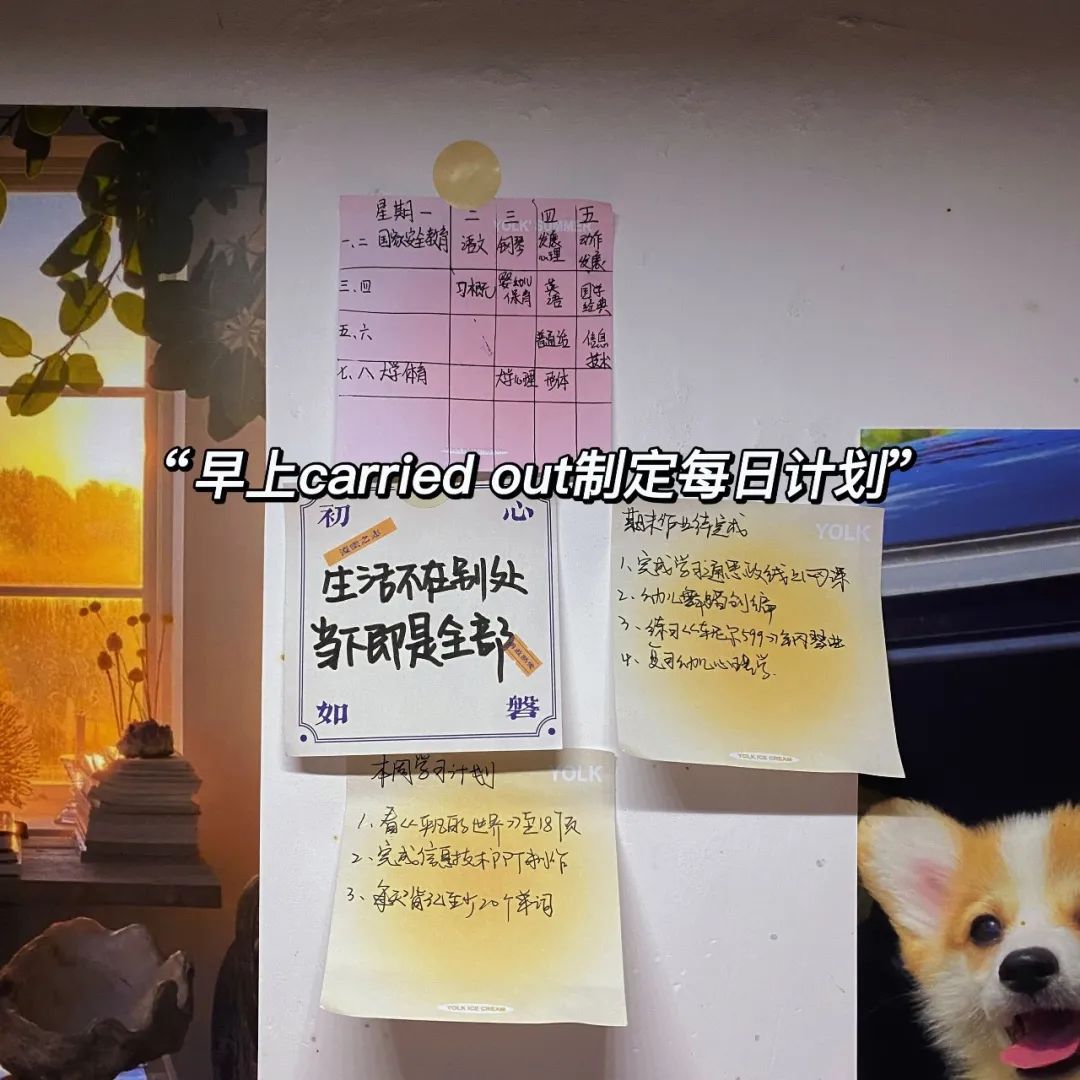 星期一 二 三 四 五
YOLK' SUMMER
一、二 国家安全教育 语文 钢琴 发展心理 动作发展
三、四 习概 婴幼儿保育 英语 国学经典
五、六 普通话 信息技术
七、八 大学体育 大学心理 形体
“早上carried out制定每日计划”
初 心
生活不在别处
当下即是全部
如 磐
期末作业待完成
YOLK
1、完成学习通思政线上网课
2、幼儿舞蹈创编
3、练习《车尔尼599》
4、复习幼儿心理学.
YOLK ICE CREAM
本周学习计划
YOLK
1、看《平凡的世界》至18页
2、完成信息技术PPT制作
3、每天背记至少20个单词
YOLK ICE CREAM